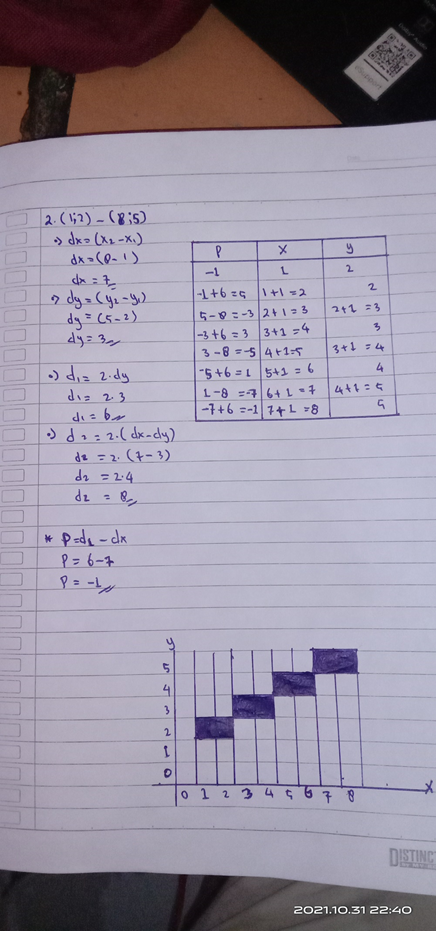 2. (1;2) - (8;5)
=> dx = (x2 - x1)
dx = (8 - 1)
dx = 7
=> dy = (y2 - y1)
dy = (5 - 2)
dy = 3
=> d1 = 2.dy
d1 = 2.3
d1 = 6
=> d2 = 2.(dx-dy)
d2 = 2.(7-3)
d2 = 2.4
d2 = 8
* P = d1 - dx
P = 6-7
P = -1
P X Y
-1 1 2
-1+6 = 5 1+1 = 2 2
5-8 = -3 2+1 = 3 2+1 = 3
-3+6 = 3 3+1 = 4 3
3-8 = -5 4+1 = 5 3+1 = 4
-5+6 = 1 5+1 = 6 4
1-8 = -7 6+1 = 7 4+1 = 5
-7+6 = -1 7+1 = 8 5
y
5
4
3
2
1
0
0 1 2 3 4 5 6 7 8 X
DISTINCT
2021.10.31 22:40